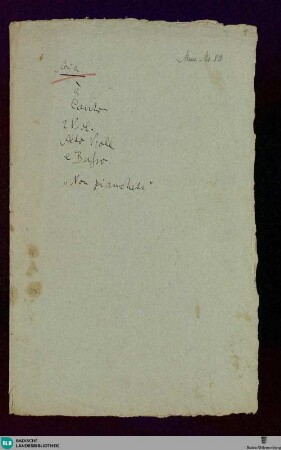 Mus. Ms. 810
Aria
à
Canto
2 Viol.
Alto Viola
e Basso
„Non piangete“
BLB
BADISCHE
LANDESBIBLIOTHEK
Baden-Württemberg